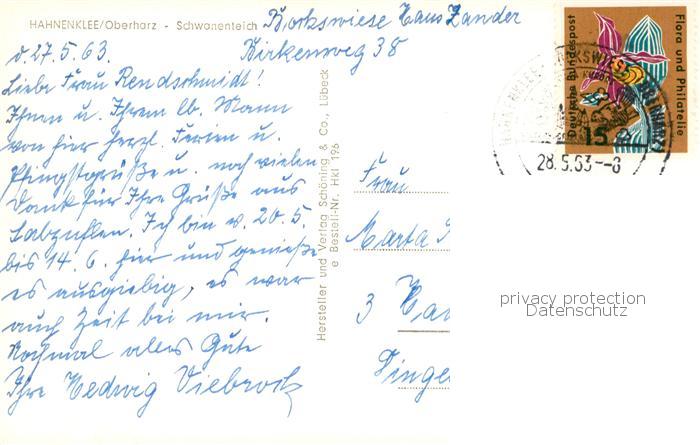 HAHNENKLEE/Oberharz - Schwanenteich
Bockswiese Haus Zander
Birkenweg 38
d. 27.5.63.
Liebe Frau Rendschmidt!
Ihnen u. Ihrem lb. Mann
von hier herzl. Ferien u.
Pfingstgrüße u. noch vielen
Dank für Ihre Grüße aus
Salzuflen. Ich bin v. 20.5.
bis 14.6. hier und genieße
es ausgiebig, es war
auch Zeit bei mir.
Nochmal alles Gute
Ihre Hedwig Viebrock
Hersteller und Verlag Schöning & Co., Lübeck
e Bestell-Nr. Hkl 196
Frau
Marta
3 Ha
Dinge
Deutsche Bundespost
Flora und Philatelie
15
28.5.63--8
privacy protection
Datenschutz